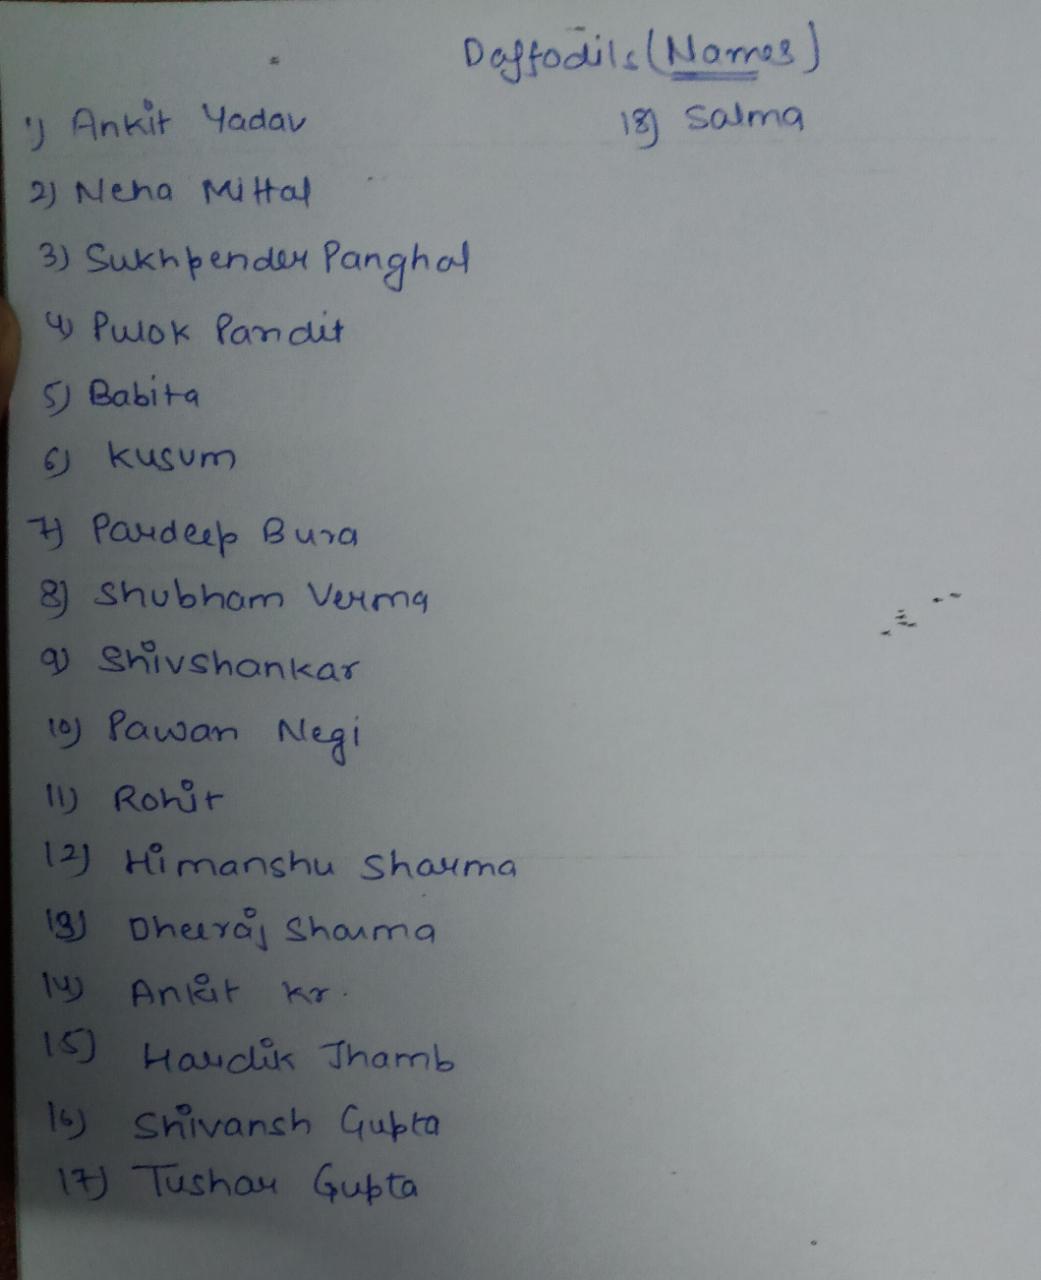 Daffodils (Names)
1) Ankit Yadav
2) Neha Mittal
3) Sukhpender Panghal
4) Pulok Pandit
5) Babita
6) Kusum
7) Pardeep Bura
8) Shubham Verma
9) Shivshankar
10) Pawan Negi
11) Rohit
12) Himanshu Sharma
13) Dheeraj Sharma
14) Ankit Kr.
15) Hardik Jhamb
16) Shivansh Gupta
17) Tushar Gupta
18) Salma